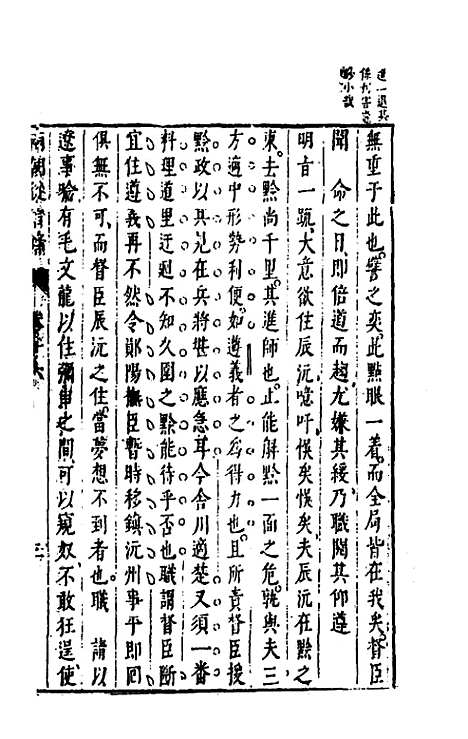 進一退其
係利害豈
眇小哉
無重于此也譬之奕此點眼一着而全局皆在我矣督臣
聞　命之日即倍道而趨尤嫌其緩乃職閱其仰遵
明旨一疏大意欲住辰沅噫吁悞矣悞矣夫辰沅在黔之
東去黔尚千里其進師也止能解黔一面之危孰與夫三
方適中形勢利便如遵義者之為得力也且所責督臣援
黔政以其見在兵將堪以應急耳今舍川適楚又須一番
料理道里迂迴不知久圍之黔能待乎否也職謂督臣斷
宜住遵義再不然令鄖陽撫臣暫時移鎮沅州事平即囘
俱無不可而督臣辰沅之住當夢想不到者也職　請以
遼事喻有毛文龍以住彌串之間可以窺奴不敢狂逞使
兩朝從信錄